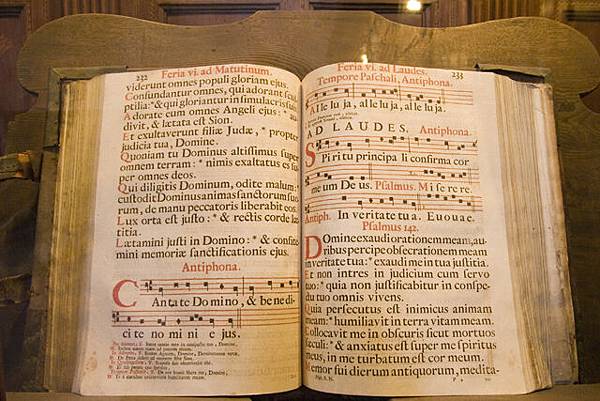 232 Feria vi. ad Matutinum.
viderunt omnes populi gloriam ejus.
Confundantur omnes, qui adorant scu
ptilia: * & qui gloriantur in simulacris suis.
Adorate eum omnes Angeli ejus: * au
divit, & lætata est Sion.
Et exultaverunt filiæ Judæ, * propter
judicia tua, Domine.
Quoniam tu Dominus altissimus super
omnem terram: * nimis exaltatus es su
per omnes deos.
Qui diligitis Dominum, odite malum: *
custodit Dominus animas sanctorum suo
rum, de manu peccatoris liberabit eos.
Lux orta est justo: * & rectis corde læ
titia.
Lætamini justi in Domino: * & confite
mini memoriæ sanctificationis ejus.
Antiphona.
Cantate Domino, & benedi
cite nomini ejus.
Feria vi. ad Laudes. 233
Tempore Paschali, Antiphona.
Alleluja, alleluja, alleluja.
AD LAUDES. Antiphona.
Spiritu principali confirma cor
meum Deus. Psalmus. Miserere.
Antiph. In veritate tua. Euouae.
Psalmus 142.
Domine exaudi orationem meam, au
ribus percipe obsecrationem meam
in veritate tua: * exaudi me in tua justitia.
Et non intres in judicium cum servo
tuo: * quia non justificabitur in conspe
ctu tuo omnis vivens.
Quia persecutus est inimicus animam
meam: * humiliavit in terra vitam meam.
Collocavit me in obscuris sicut mortuos
sæculi: * & anxiatus est super me spiritus
meus, in me turbatum est cor meum.
Memor fui dierum antiquorum, medita